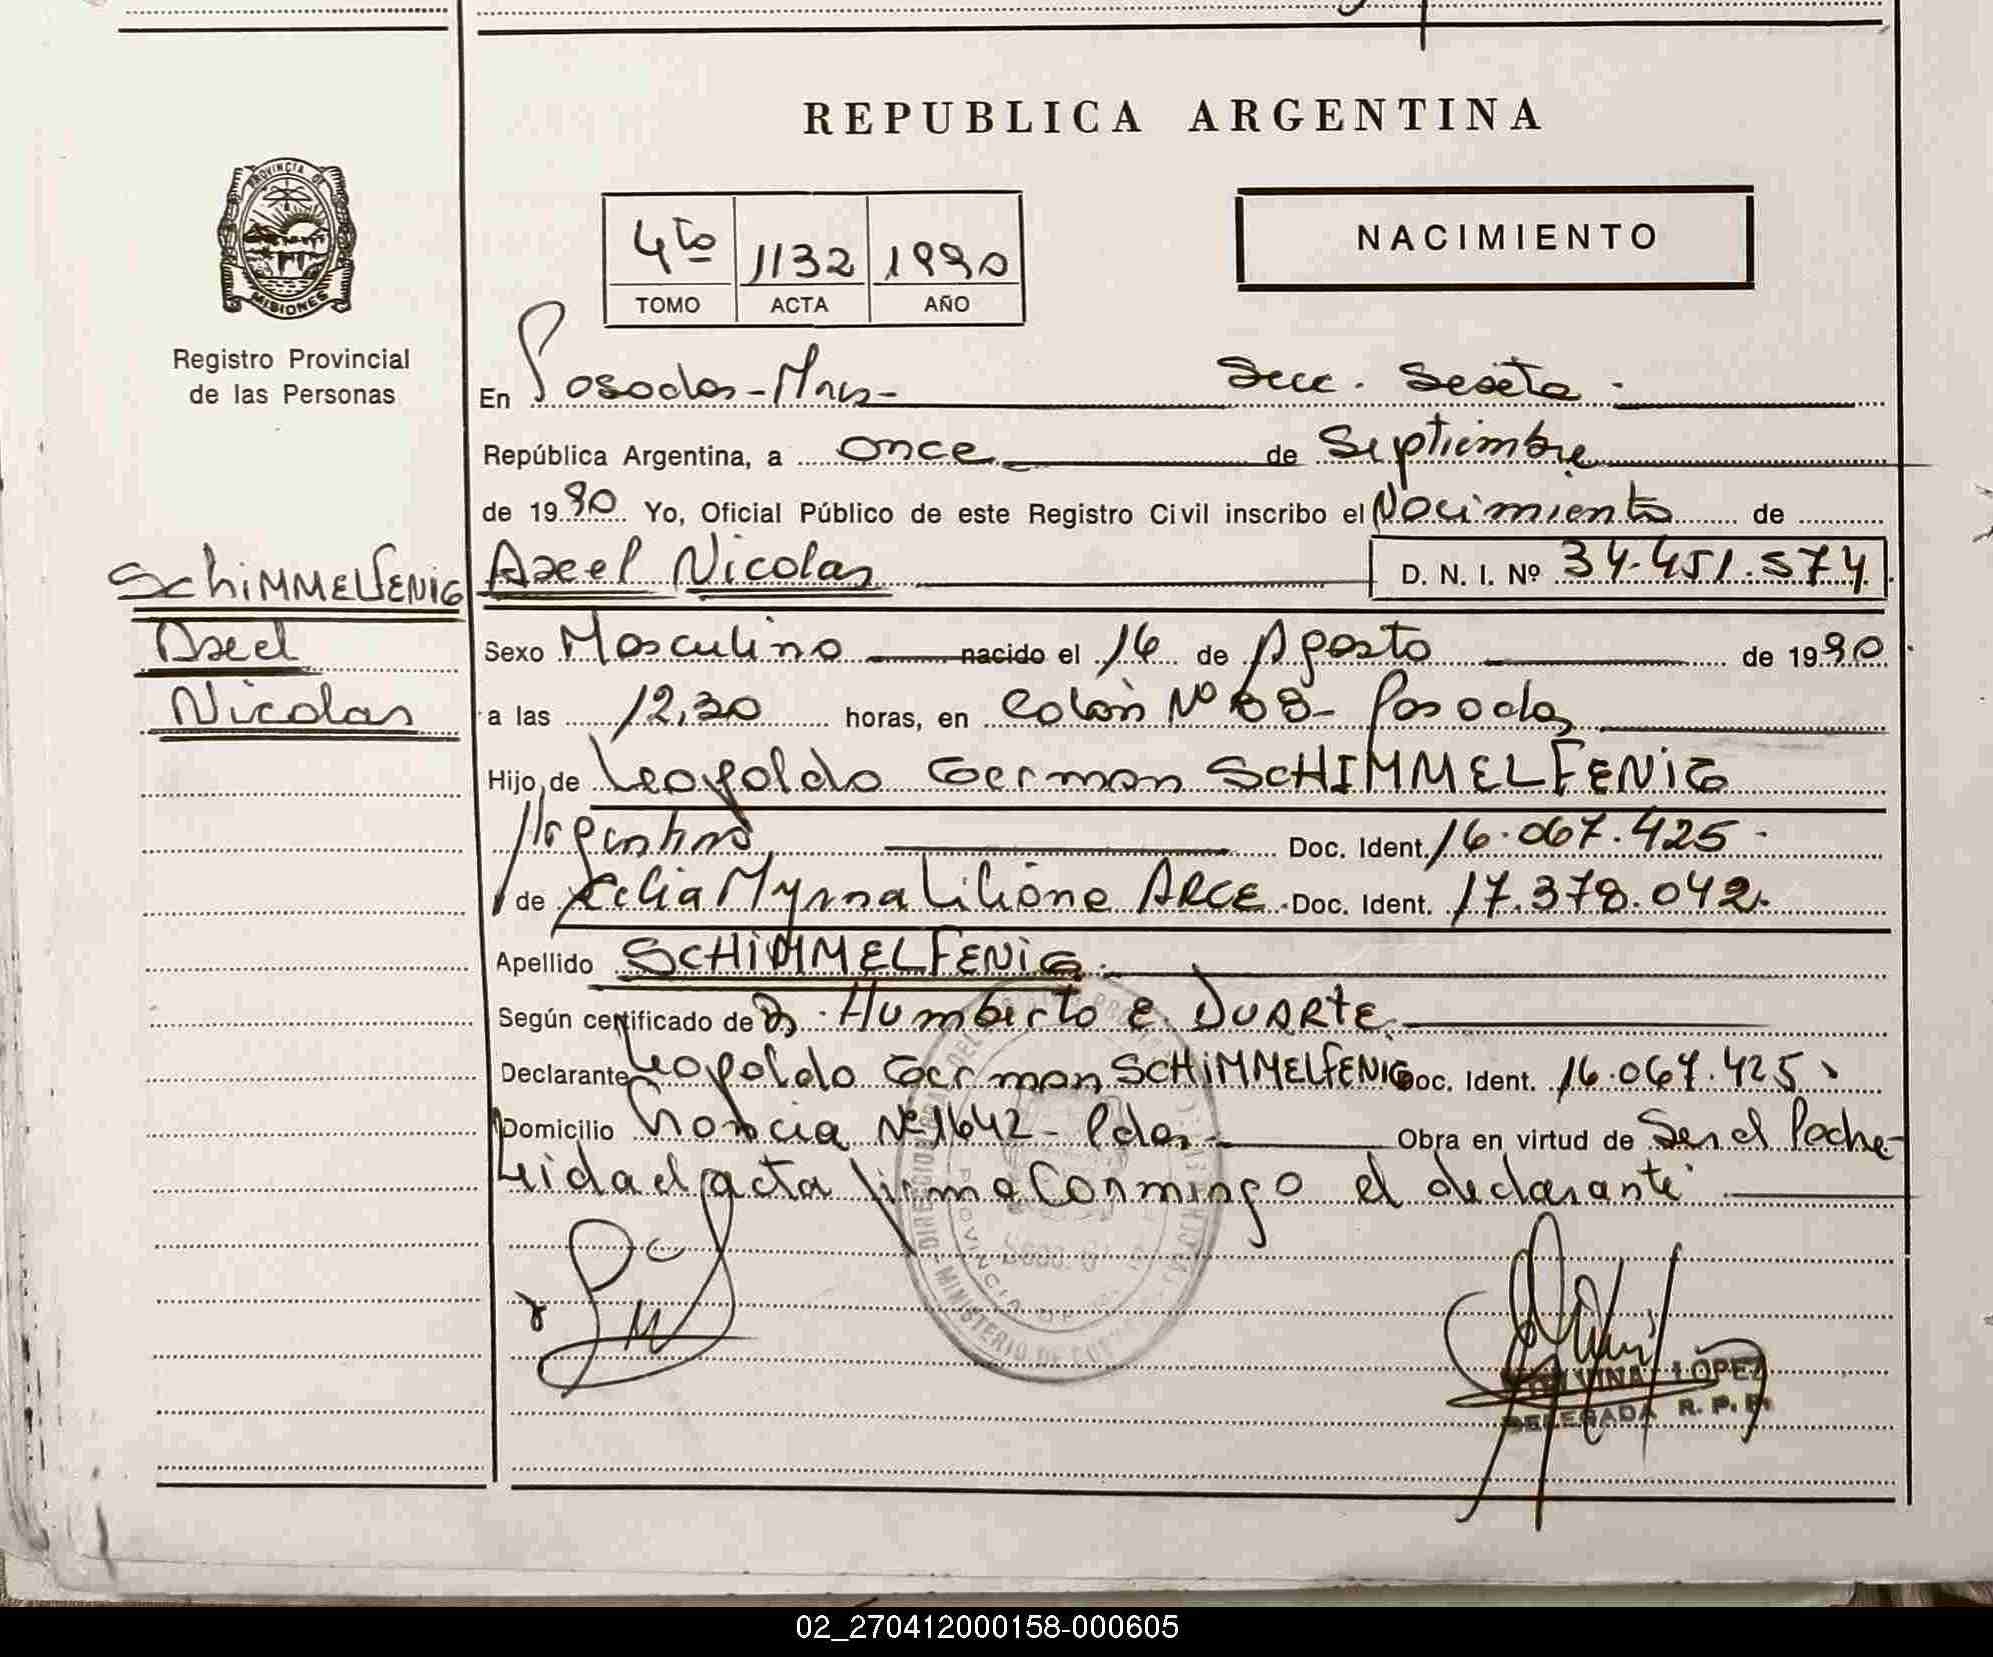 REPUBLICA ARGENTINA
PROVINCIA DE
MISIONES
Registro Provincial
de las Personas
4to 1132 1990
TOMO ACTA AÑO
NACIMIENTO
En Posadas-Mnes- Secc. Sexta.
República Argentina, a once de Septiembre
de 1990 Yo, Oficial Público de este Registro Civil inscribo el Nacimiento de
SCHiMMELFENiG
Axel
Nicolas
Axel Nicolas D. N. I. Nº 34.451.574
Sexo Masculino nacido el 16 de Agosto de 1990
a las 12,30 horas, en Colón Nº 68- Posadas
Hijo de Leopoldo German SCHIMMELFENiG
Argentino Doc. Ident. 16.067.425.
y de Celia Myrna Liliana ARCE Doc. Ident. 17.378.042.
Apellido SCHiMMELFENiG.
Según certificado de Dr. Humberto E. DUARTE
Declarante Leopoldo German SCHiMMELFENiG Doc. Ident. 16.067.425
Domicilio Nº 1642- Pdas- Obra en virtud de Ser el Padre-
Leida el acta firma Conmingo el declarante
PROVINCIA
MINISTERIO DE
LOPEZ
DELEGADA R. P. P.
02_270412000158-000605